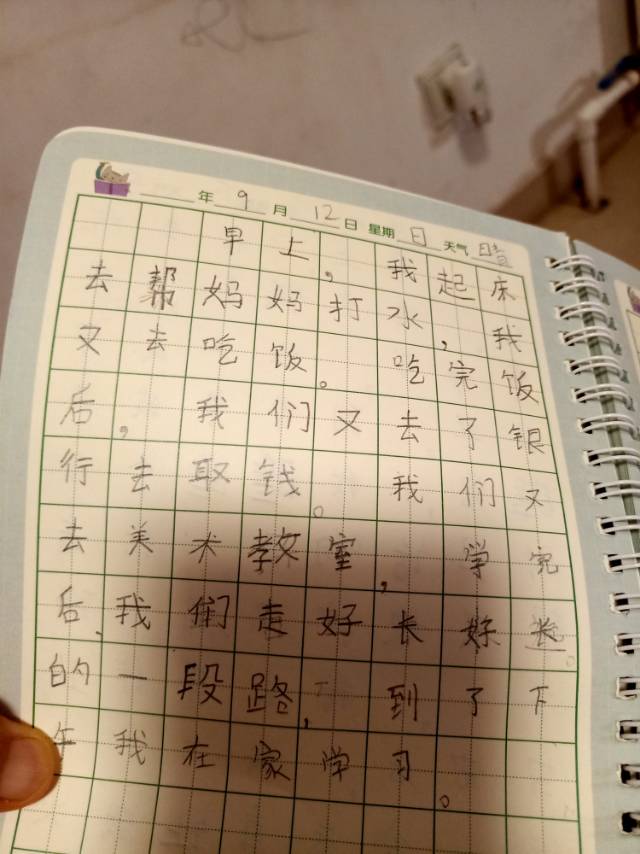 年 9 月 12 日 星期 日 天气 晴
早上，我起床
去帮妈妈打水，我
又去吃饭。吃完饭
后，我们又去了银
行去取钱。我们又
去美术教室，学完
后、我们走好长好长。
的一段路，到了下
午我在家学习。